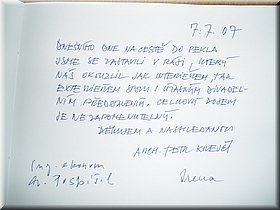 7.7.07
DNEŠNÍHO DNE NA CESTĚ DO PEKLA
JSME SE ZASTAVILI V RÁJI, KTERÝ
NÁS OKOUZLIL JAK INTERIÉREM, TAK
EXTERIÉREM SPOLU S ÚŽASNÝM DIVADEL-
NÍM PŘEDSTAVENÍM. CELKOVÝ DOJEM
JE NEZAPOMENUTELNÝ.
DĚKUJEM A NASHLEDANOU
ARCH. PETR
Ing. ekonom
Irena